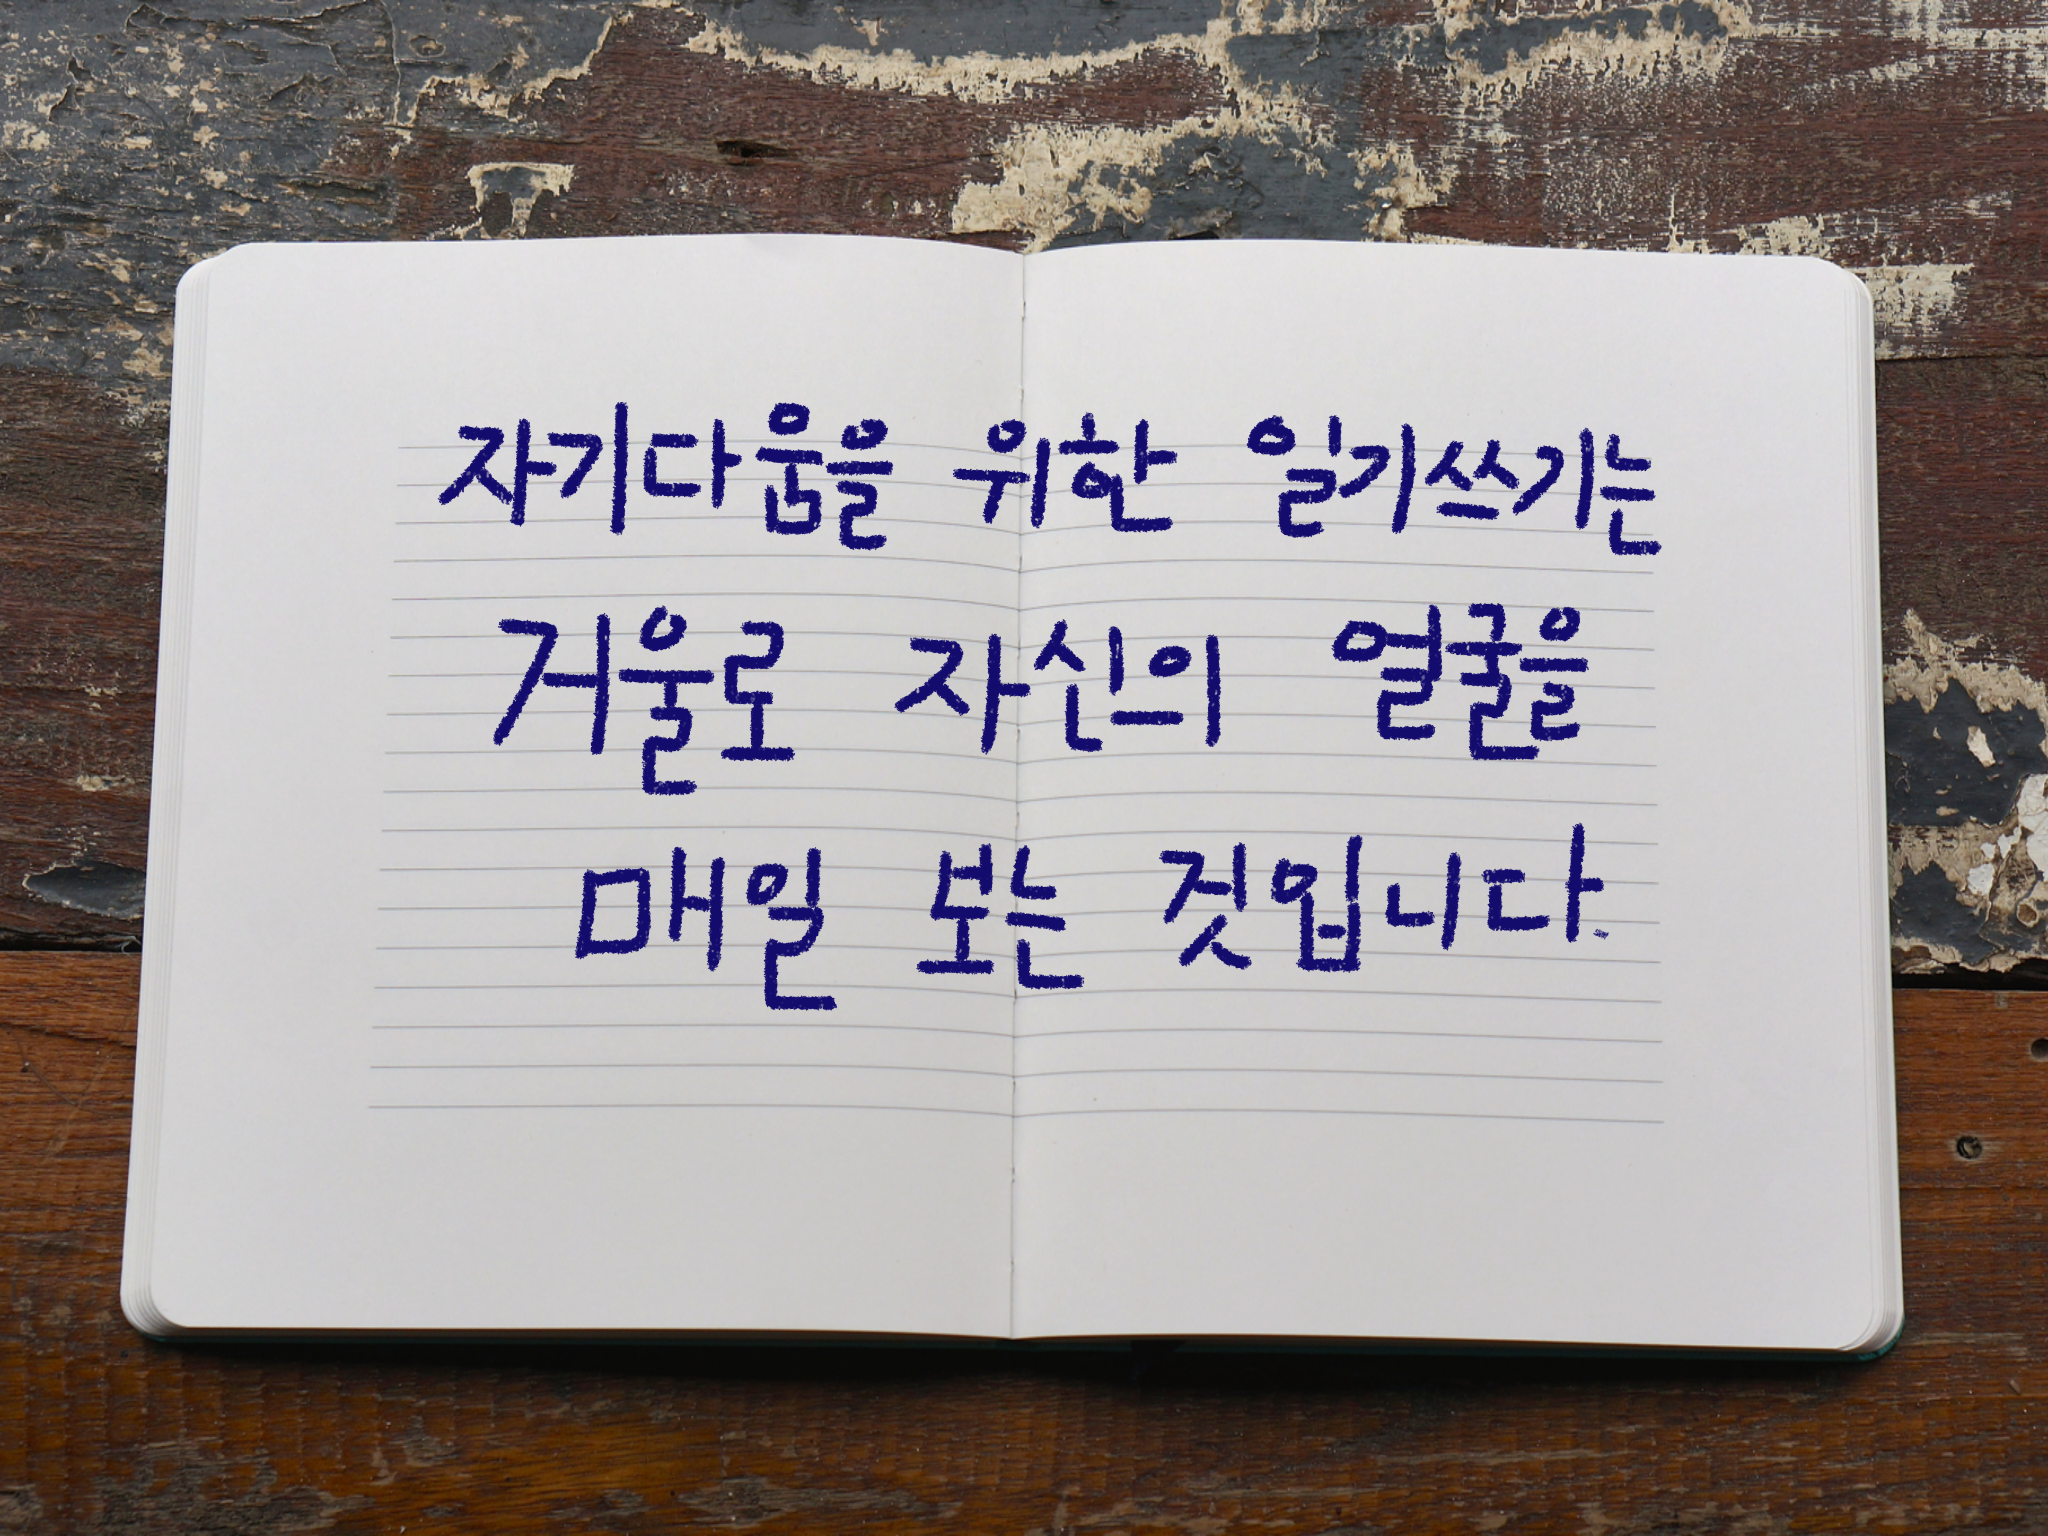 자기다움을 위한 일기쓰기는
거울로 자신의 얼굴을
매일 보는 것입니다.